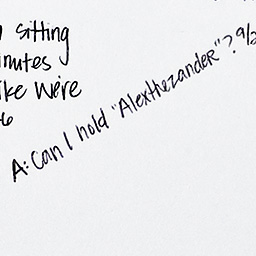 sitting
inutes
ike We're
A: Can I hold "Alexthezander"? 9/2